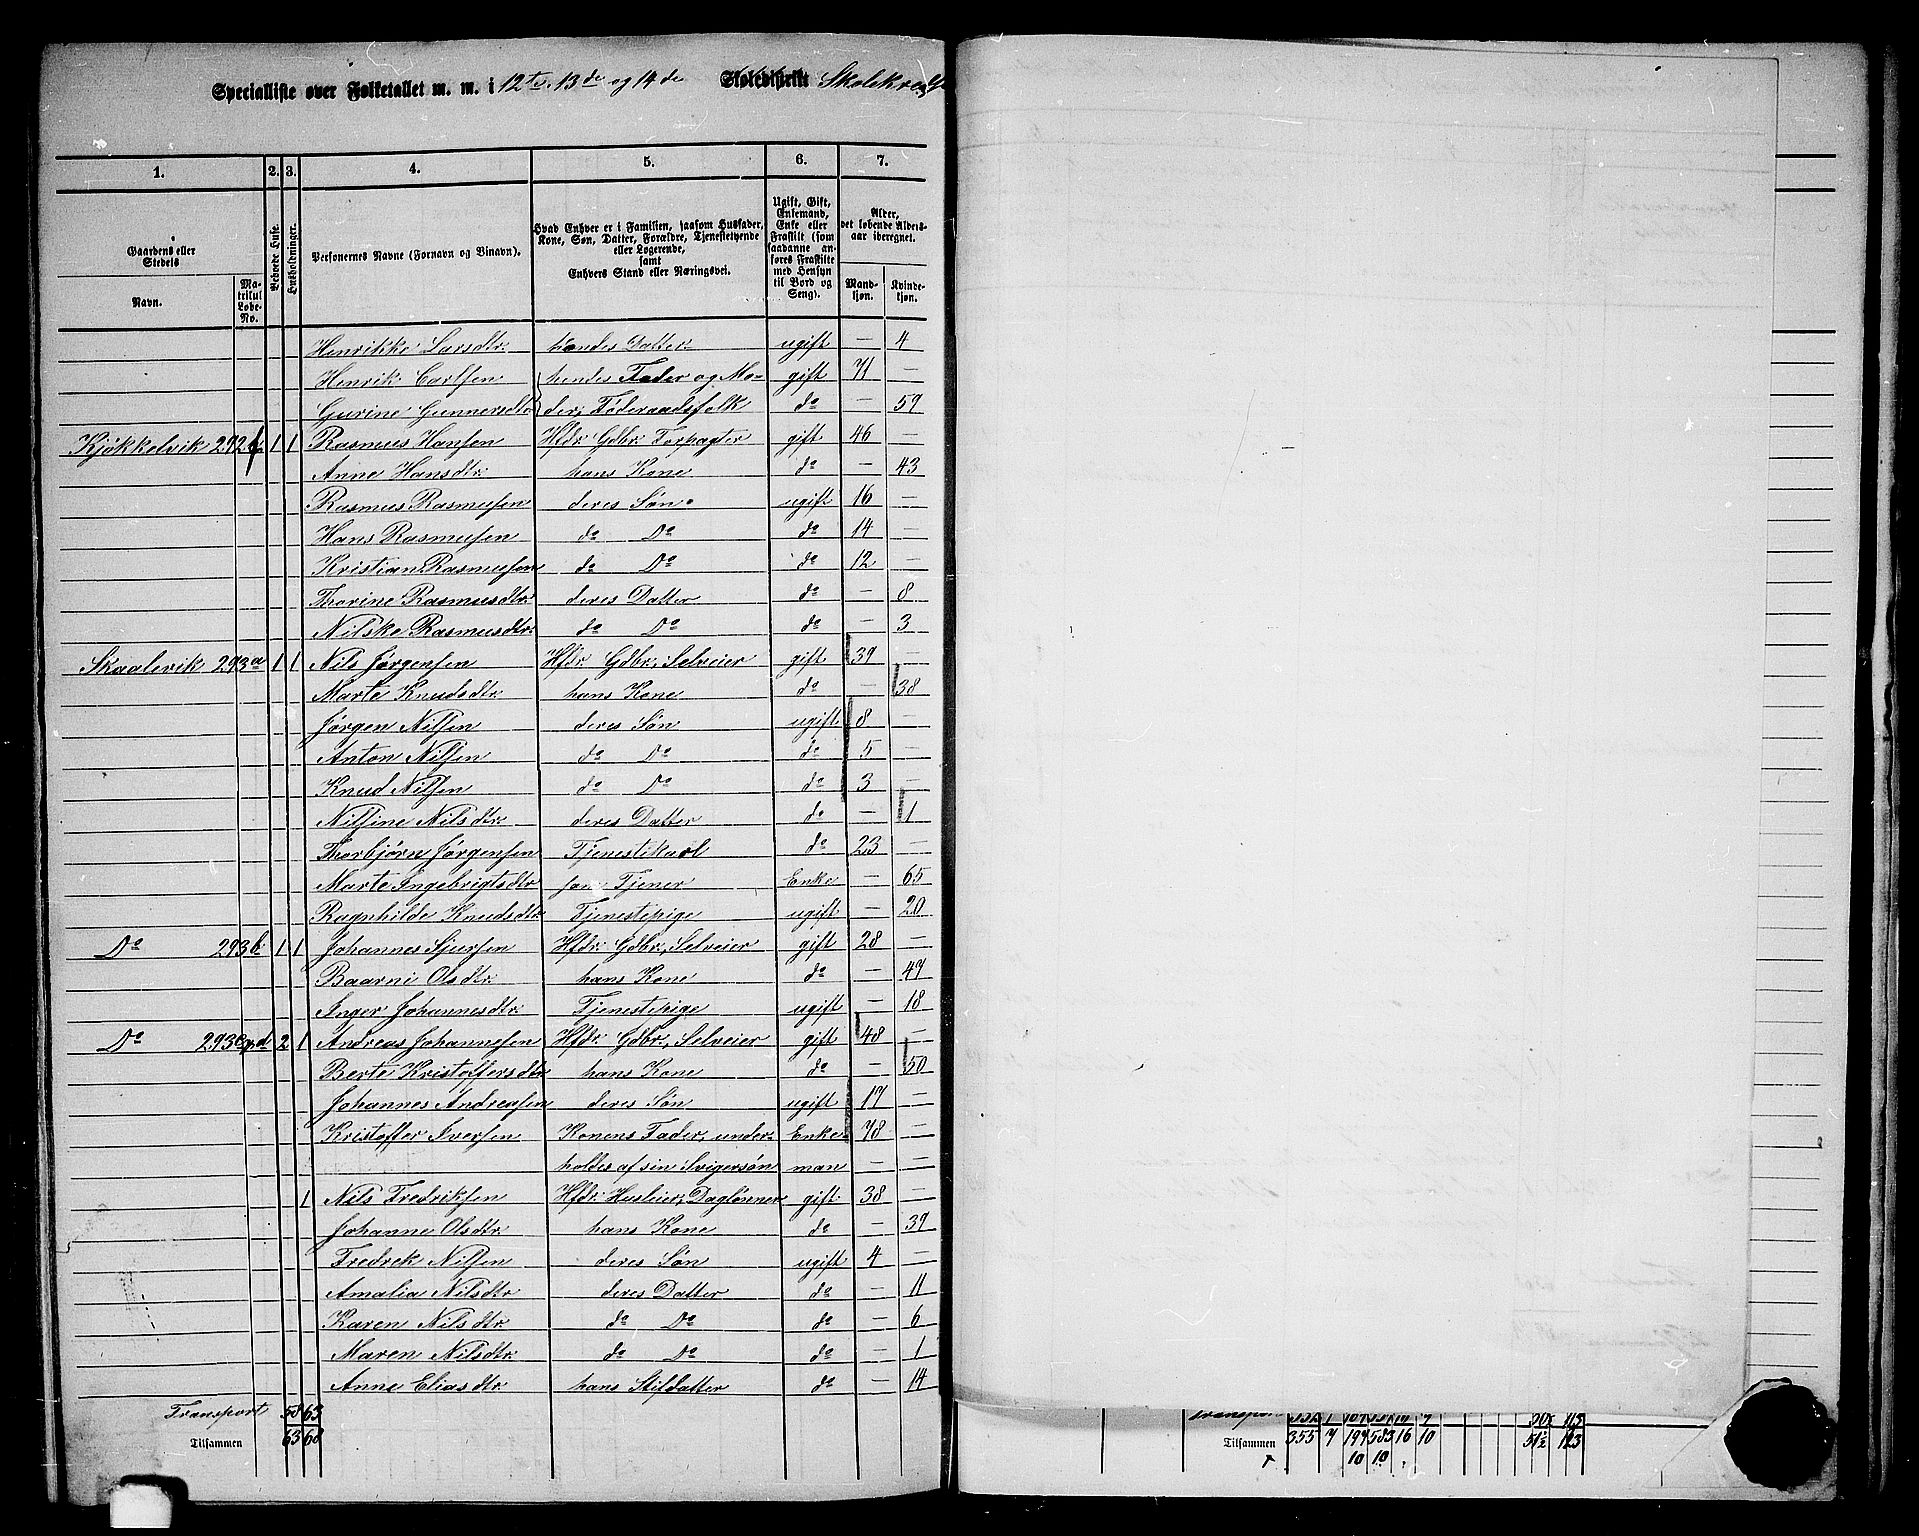 Specialliste over Folketallet m. m. i 12te, 13de og 14de Skoledistrikt Skolekreds
1. 2. 3. 4. 5. 6. 7.
Gaardens eller Stedets
Navn.
Matrikul Løbe-No.
Beboede Huse.
Husholdninger.
Personernes Navne (Fornavn og Vinavn).
Hvad Enhver er i Familien, saasom Husfader, Kone, Søn, Datter, Forældre, Tjenestetyende eller Logerende, samt Enhvers Stand eller Næringsvei.
Ugift, Gift, Enkemand, Enke eller Fraskilt (som saadanne anføres Fraskilte med Hensyn til Bord og Seng).
Alder, det løbende Aldersaar iberegnet.
Mandkjøn. Kvindekjøn.
Henrikke Larsdtr. hendes Datter ugift — 4
Henrik Carlsen hendes Fader og Mo- gift 71 —
Gurine Gunnersdtr der, Føderaadsfolk do — 59
Kjøkkelvik 292 1 1 Rasmus Hansen Hfdr. Gdbr. Forpagter gift 46 —
Anne Hansdtr. hans Kone do — 43
Rasmus Rasmussen deres Søn ugift 16 —
Hans Rasmussen do Do do 14 —
Kristian Rasmussen do Do do 12 —
Thorine Rasmusdtr. deres Datter do — 8
Nilske Rasmusdtr. do Do do — 3
Skaalevik 293a 1 1 Nils Jørgensen Hfdr. Gdbr., Selveier gift 39 —
Marte Knudsdtr. hans Kone do — 38
Jørgen Nilsen deres Søn ugift 8 —
Anton Nilsen do Do do 5 —
Knud Nilsen do Do do 3 —
Nilsine Nilsdtr. deres Datter do — 1
Thorbjørn Jørgensen Tjenestekarl do 23 —
Marte Ingebrigtsdtr Tjener Enke — 65
Ragnhilde Knudsdtr. Tjenestepige ugift — 20
Do 293b 1 1 Johannes Sjursen Hfdr. Gdbr., Selveier gift 28 —
Baarni Olsdtr. hans Kone do — 47
Inger Johannesdtr. Tjenestepige ugift — 18
Do 293c,d 2 1 Andreas Johannesen Hfdr. Gdbr., Selveier gift 48 —
Berte Kristoffersdtr. hans Kone do — 50
Johannes Andreasen deres Søn ugift 17 —
Kristoffer Iversen Konens Fader, under- Enke- 78 —
holdes af sin Svigersøn man — —
1 Nils Fredriksen Hfdr. Huseier, Daglønner gift 38 —
Johanne Olsdtr. hans Kone do — 39
Fredrek Nilsen deres Søn ugift 4 —
Amalia Nilsdtr deres Datter do — 11
Karen Nilsdtr. do Do do — 6
Maren Nilsdtr. do Do do — 1
Anne Eliasdtr. hans Stifdatter do — 14
Transport 58 63
Tilsammen 63 68
Transport
Tilsammen 355 7 197 583 16 10 51½ 123
10 10